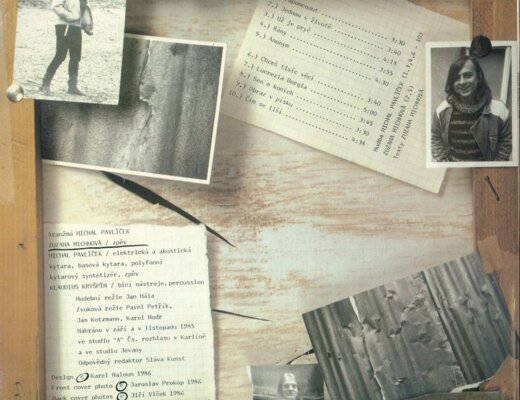 2.) Jednou v životě
3.) Už je pryč 3:30
4.) Rány 3:40
5.) Anonym 4:18
3:55
6.) Chceš tisíc věcí 4:30
7.) Lucrezia Borgia
8.) Sen o koních 3:40
9.) Obraz v písku 5:00
10.) Čím se liší 3:45
3:30
4:38
Hudba MICHAL PAVLÍČEK (1,3,4,6 - 10)
ZUZANA MICHNOVÁ (2,5)
Texty ZUZANA MICHNOVÁ
Aranžmá MICHAL PAVLÍČEK
ZUZANA MICHNOVÁ / zpěv
MICHAL PAVLÍČEK / elektrická a akustická
kytara, basová kytara, polyfonní
kytarový syntetizér, zpěv
KLAUDIUS KRYŠPÍN / bicí nástroje, percussion
Hudební režie Jan Hála
Zvuková režie Pavel Petřík,
Jan Kotzmann, Karel Hodr
Nahráno v září a v listopadu 1985
ve studiu "A" Čs. rozhlasu v Karlíně
a ve studiu Jevany
Odpovědný redaktor Sláva Kunst
Design © Karel Haloun 1986
Front cover photo © Jaroslav Prokop 1986
Back cover photos © Jiří Vlček 1986